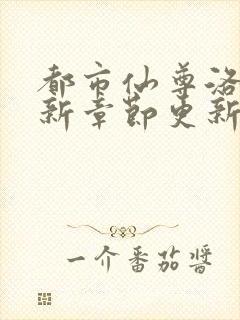 都市仙尊洛
新章节更新
一介番茄酱